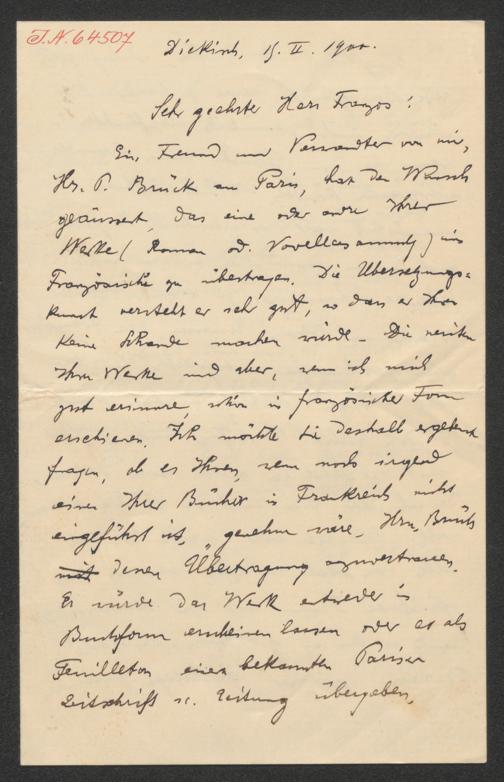 J.N. 64507
Diekirch, 15. II. 1900.
Sehr geehrter Herr Franzos!
Ein Freund und Verwandter von mir,
Hr. P. Brück in Paris, hat den Wunsch
geäussert, das eine oder andre Ihrer
Werke (Roman od. Novellensammlg) ins
Französische zu übertragen. Die Übersetzungs=
kunst versteht er sehr gut, so dass er Ihnen
keine Schande machen würde. – Die meisten
Ihrer Werke sind aber, wenn ich mich
gut erinnere, schon in französischer Form
erschienen. Ich möchte Sie deshalb ergebenst
fragen, ob es Ihnen, wenn noch irgend
eines Ihrer Bücher in Frankreich nicht
eingeführt ist, genehm wäre, Hrn. Brück
mit deren Übertragung anzuvertrauen.
Er würde das Werk entweder in
Buchform erscheinen lassen oder es als
Feuilleton einer bekannten Pariser
Zeitschrift u. Zeitung übergeben.